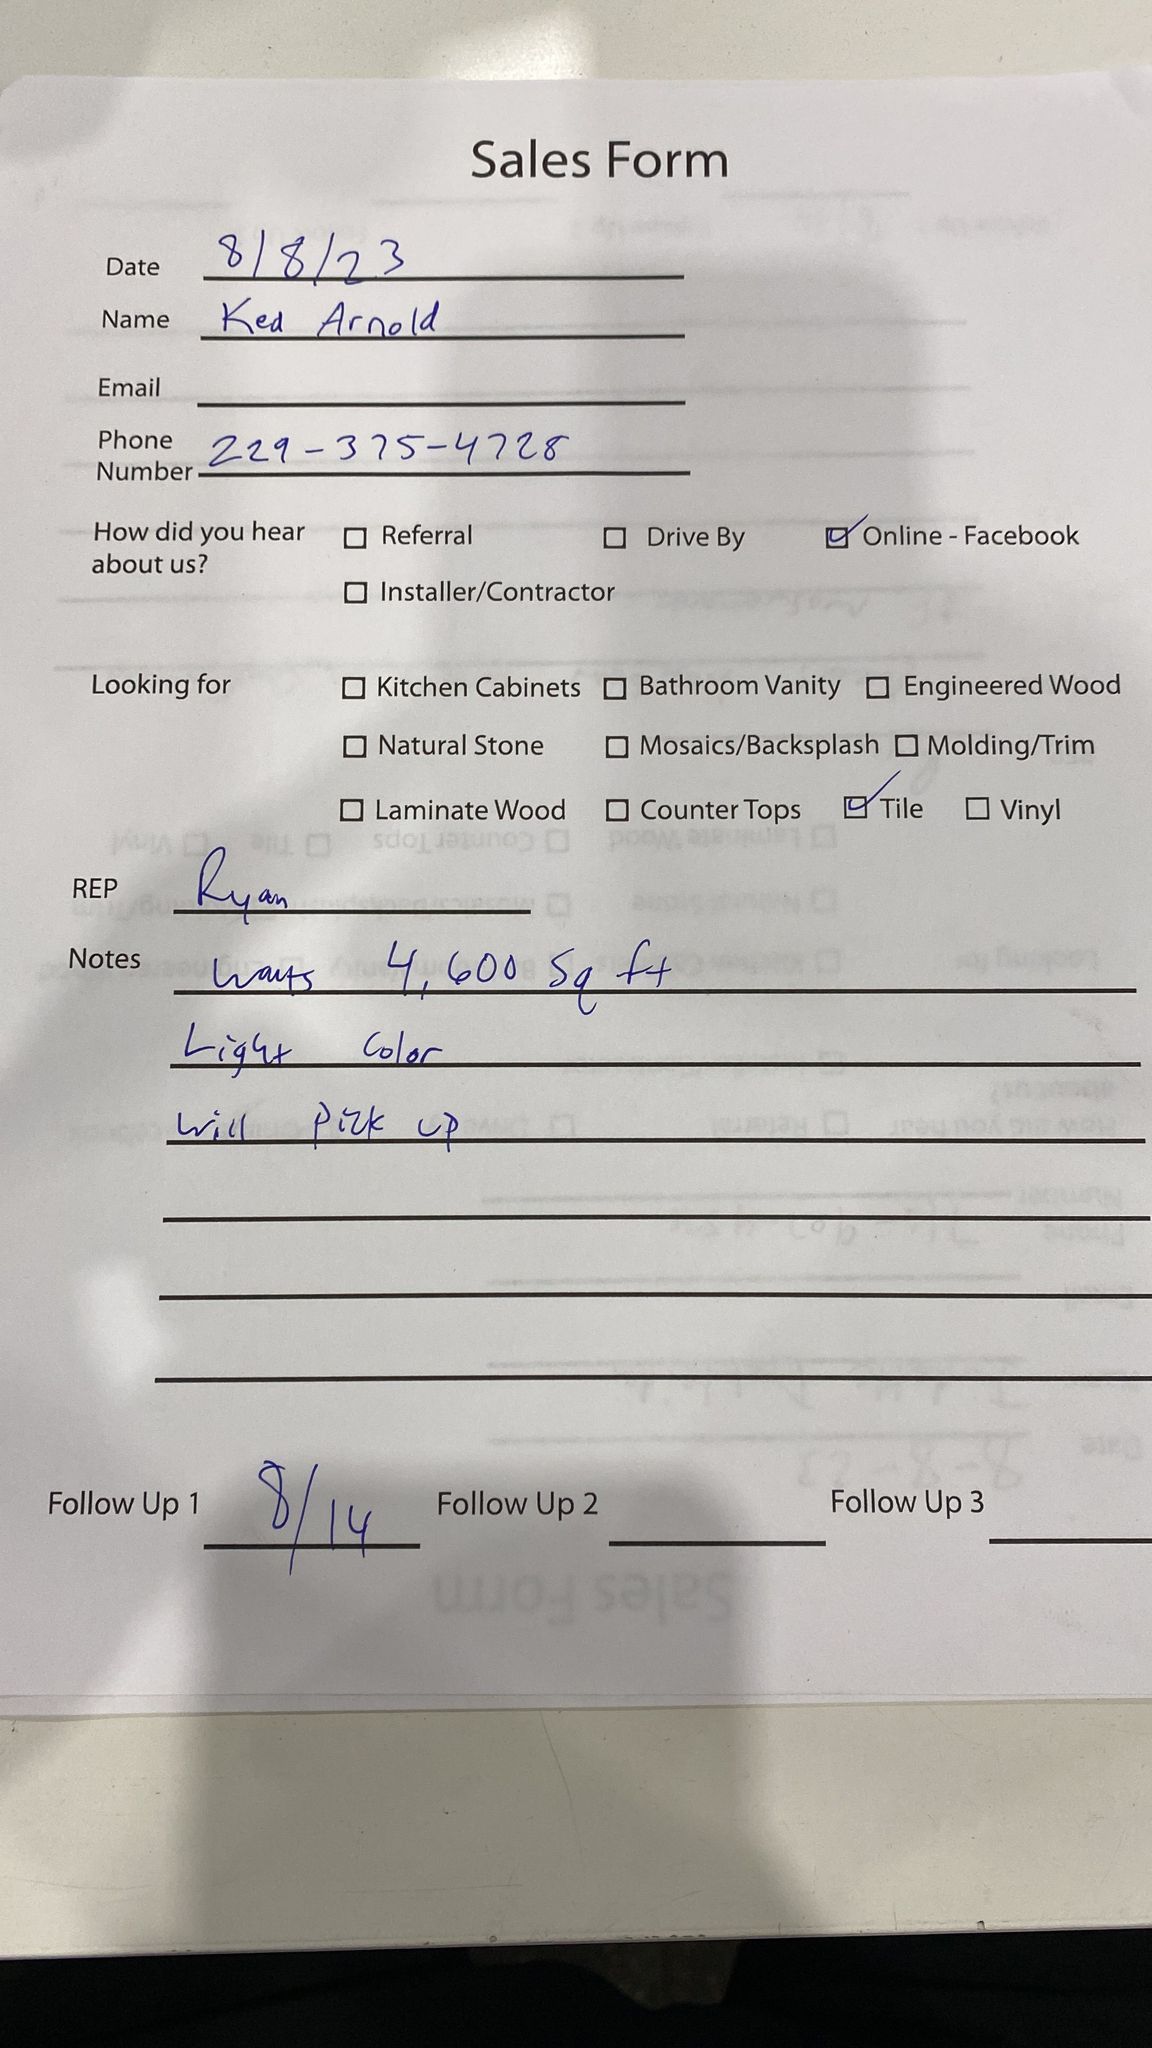 Sales Form
Date 8/8/23
Name Ked Arnold
Email
Phone Number 229-375-4728
How did you hear about us? ☐ Referral ☐ Drive By ☑ Online - Facebook
☐ Installer/Contractor
Looking for ☐ Kitchen Cabinets ☐ Bathroom Vanity ☐ Engineered Wood
☐ Natural Stone ☐ Mosaics/Backsplash ☐ Molding/Trim
☐ Laminate Wood ☐ Counter Tops ☑ Tile ☐ Vinyl
REP Ryan
Notes wants 4,600 Sq ft
Light Color
Will Pick up
Follow Up 1 8/14 Follow Up 2 Follow Up 3